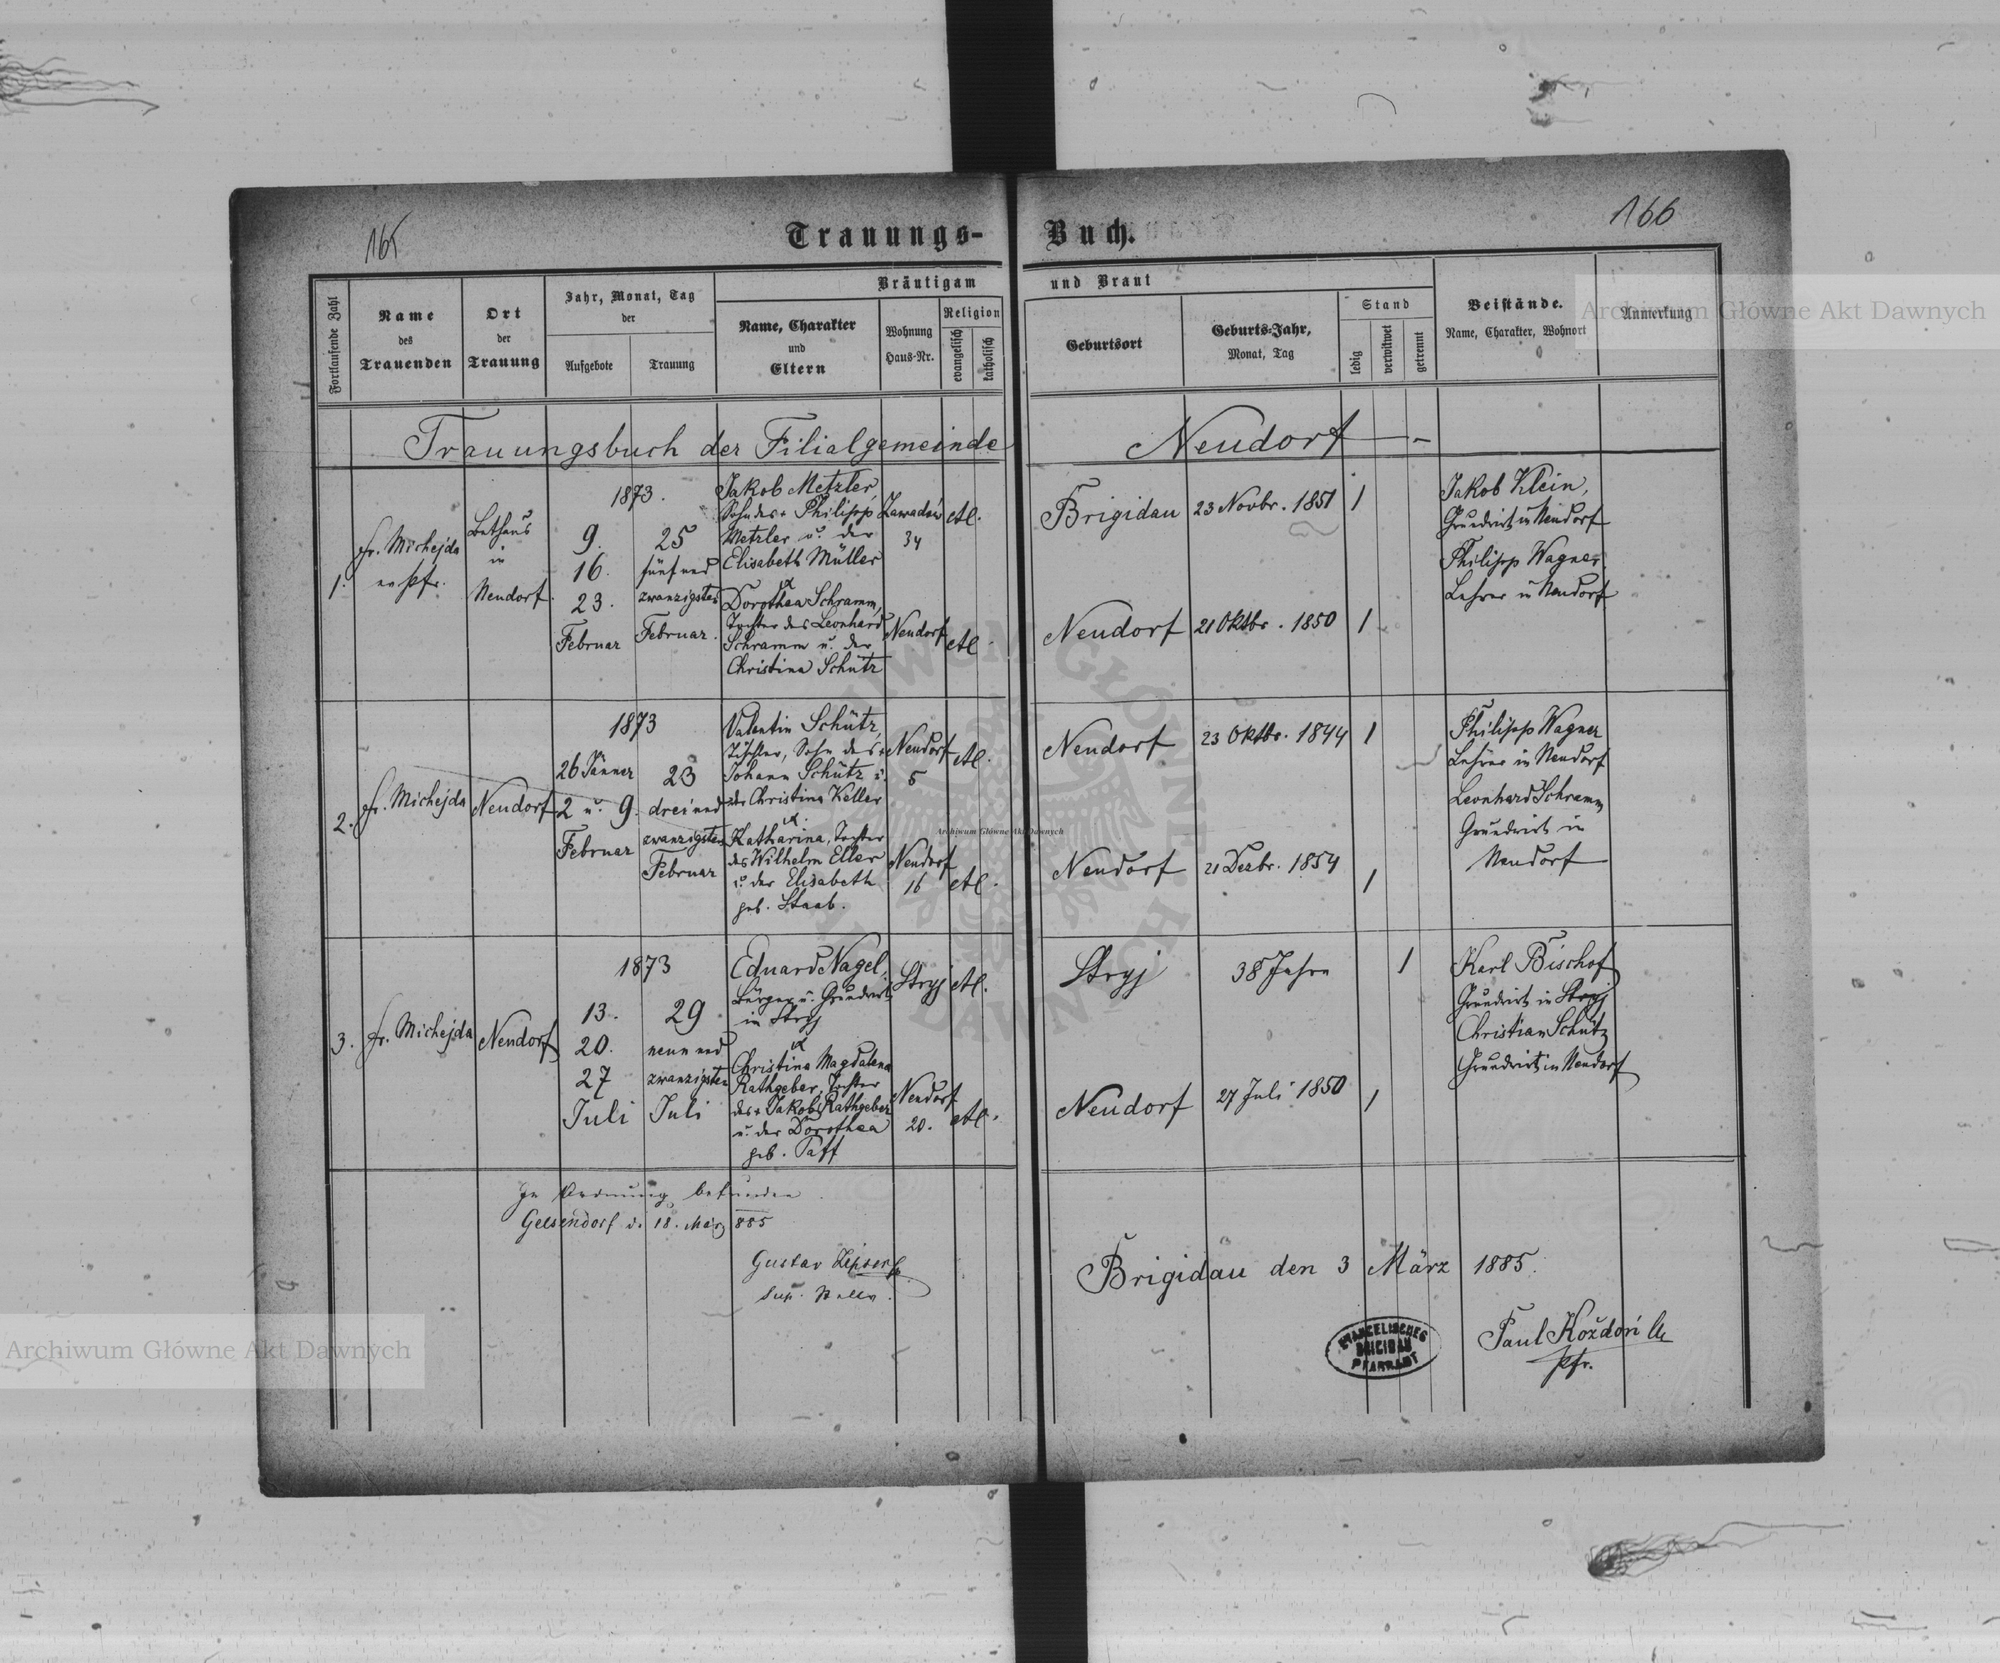 165
166
Trauungs-Buch.
Fortlaufende Zahl
Name des Trauenden
Ort der Trauung
Jahr, Monat, Tag der
Aufgebote
Trauung
Bräutigam und Braut
Name, Charakter und Eltern
Wohnung Haus-Nr.
Religion
evangelisch
katholisch
Geburtsort
Geburts-Jahr, Monat, Tag
Stand
ledig
verwitwet
getrennt
Beistände.
Name, Charakter, Wohnort
Anmerkung
Trauungsbuch der Filialgemeinde Neudorf
1.
fr. Michejda
ev Pfr.
Bethaus
in
Neudorf.
1873.
9.
16.
23.
Februar
25
fünfund
zwanzigsten
Februar.
Jakob Metzler,
Sohn des + Philipp
Metzler u. der
Elisabeth Müller
Zawadów
34
AC.
Brigidau
23 Novbr. 1851
1
Dorothea Schramm,
Tochter des Leonhard
Schramm u. der
Christina Schütz
Neudorf
AC.
Neudorf
21 Oktbr. 1850
1
Jakob Klein,
Grundwirt in Neudorf
Philipp Wagner
Lehrer in Neudorf
2.
fr. Michejda
Neudorf
1873
26 Jänner
2 u. 9.
Februar
23
dreiund
zwanzigsten
Februar
Valentin Schütz,
Tischler, Sohn des +
Johann Schütz u.
der Christina Keller
Neudorf
5
AC.
Neudorf
23 Oktbr. 1844
1
Katharina, Tochter
des Wilhelm Eller
u. der Elisabeth
geb. Staab.
Neudorf
16
AC.
Neudorf
21 Dezbr. 1854
1
Philipp Wagner
Lehrer in Neudorf
Leonhard Schramm
Grundwirt in
Neudorf
3.
fr. Michejda
Neudorf
1873
13.
20.
27
Juli
29
neun und
zwanzigsten
Juli
Eduard Nagel,
Bürger u. Grundwirt
in Stryj
Stryj
AC.
Stryj
38 Jahre
1
Christina Magdalena
Rathgeber, Tochter
des + Jakob Rathgeber
u. der Dorothea
geb. Paff
Neudorf
20.
AC.
Neudorf
27 Juli 1850
1
Karl Bischof
Grundwirt in Stryj
Christian Schütz
Grundwirt in Neudorf
In Ordnung befunden.
Gelsendorf d. 18. März 885
Gustav Zipser
Sup. Stellv.
Brigidau den 3 März 1885.
EVANGELISCHES
BRIGIDAU
PFARRAMT
Paul Koždoń
Pfr.
Archiwum Główne Akt Dawnych
Archiwum Główne Akt Dawnych
Archiwum Główne Akt Dawnych